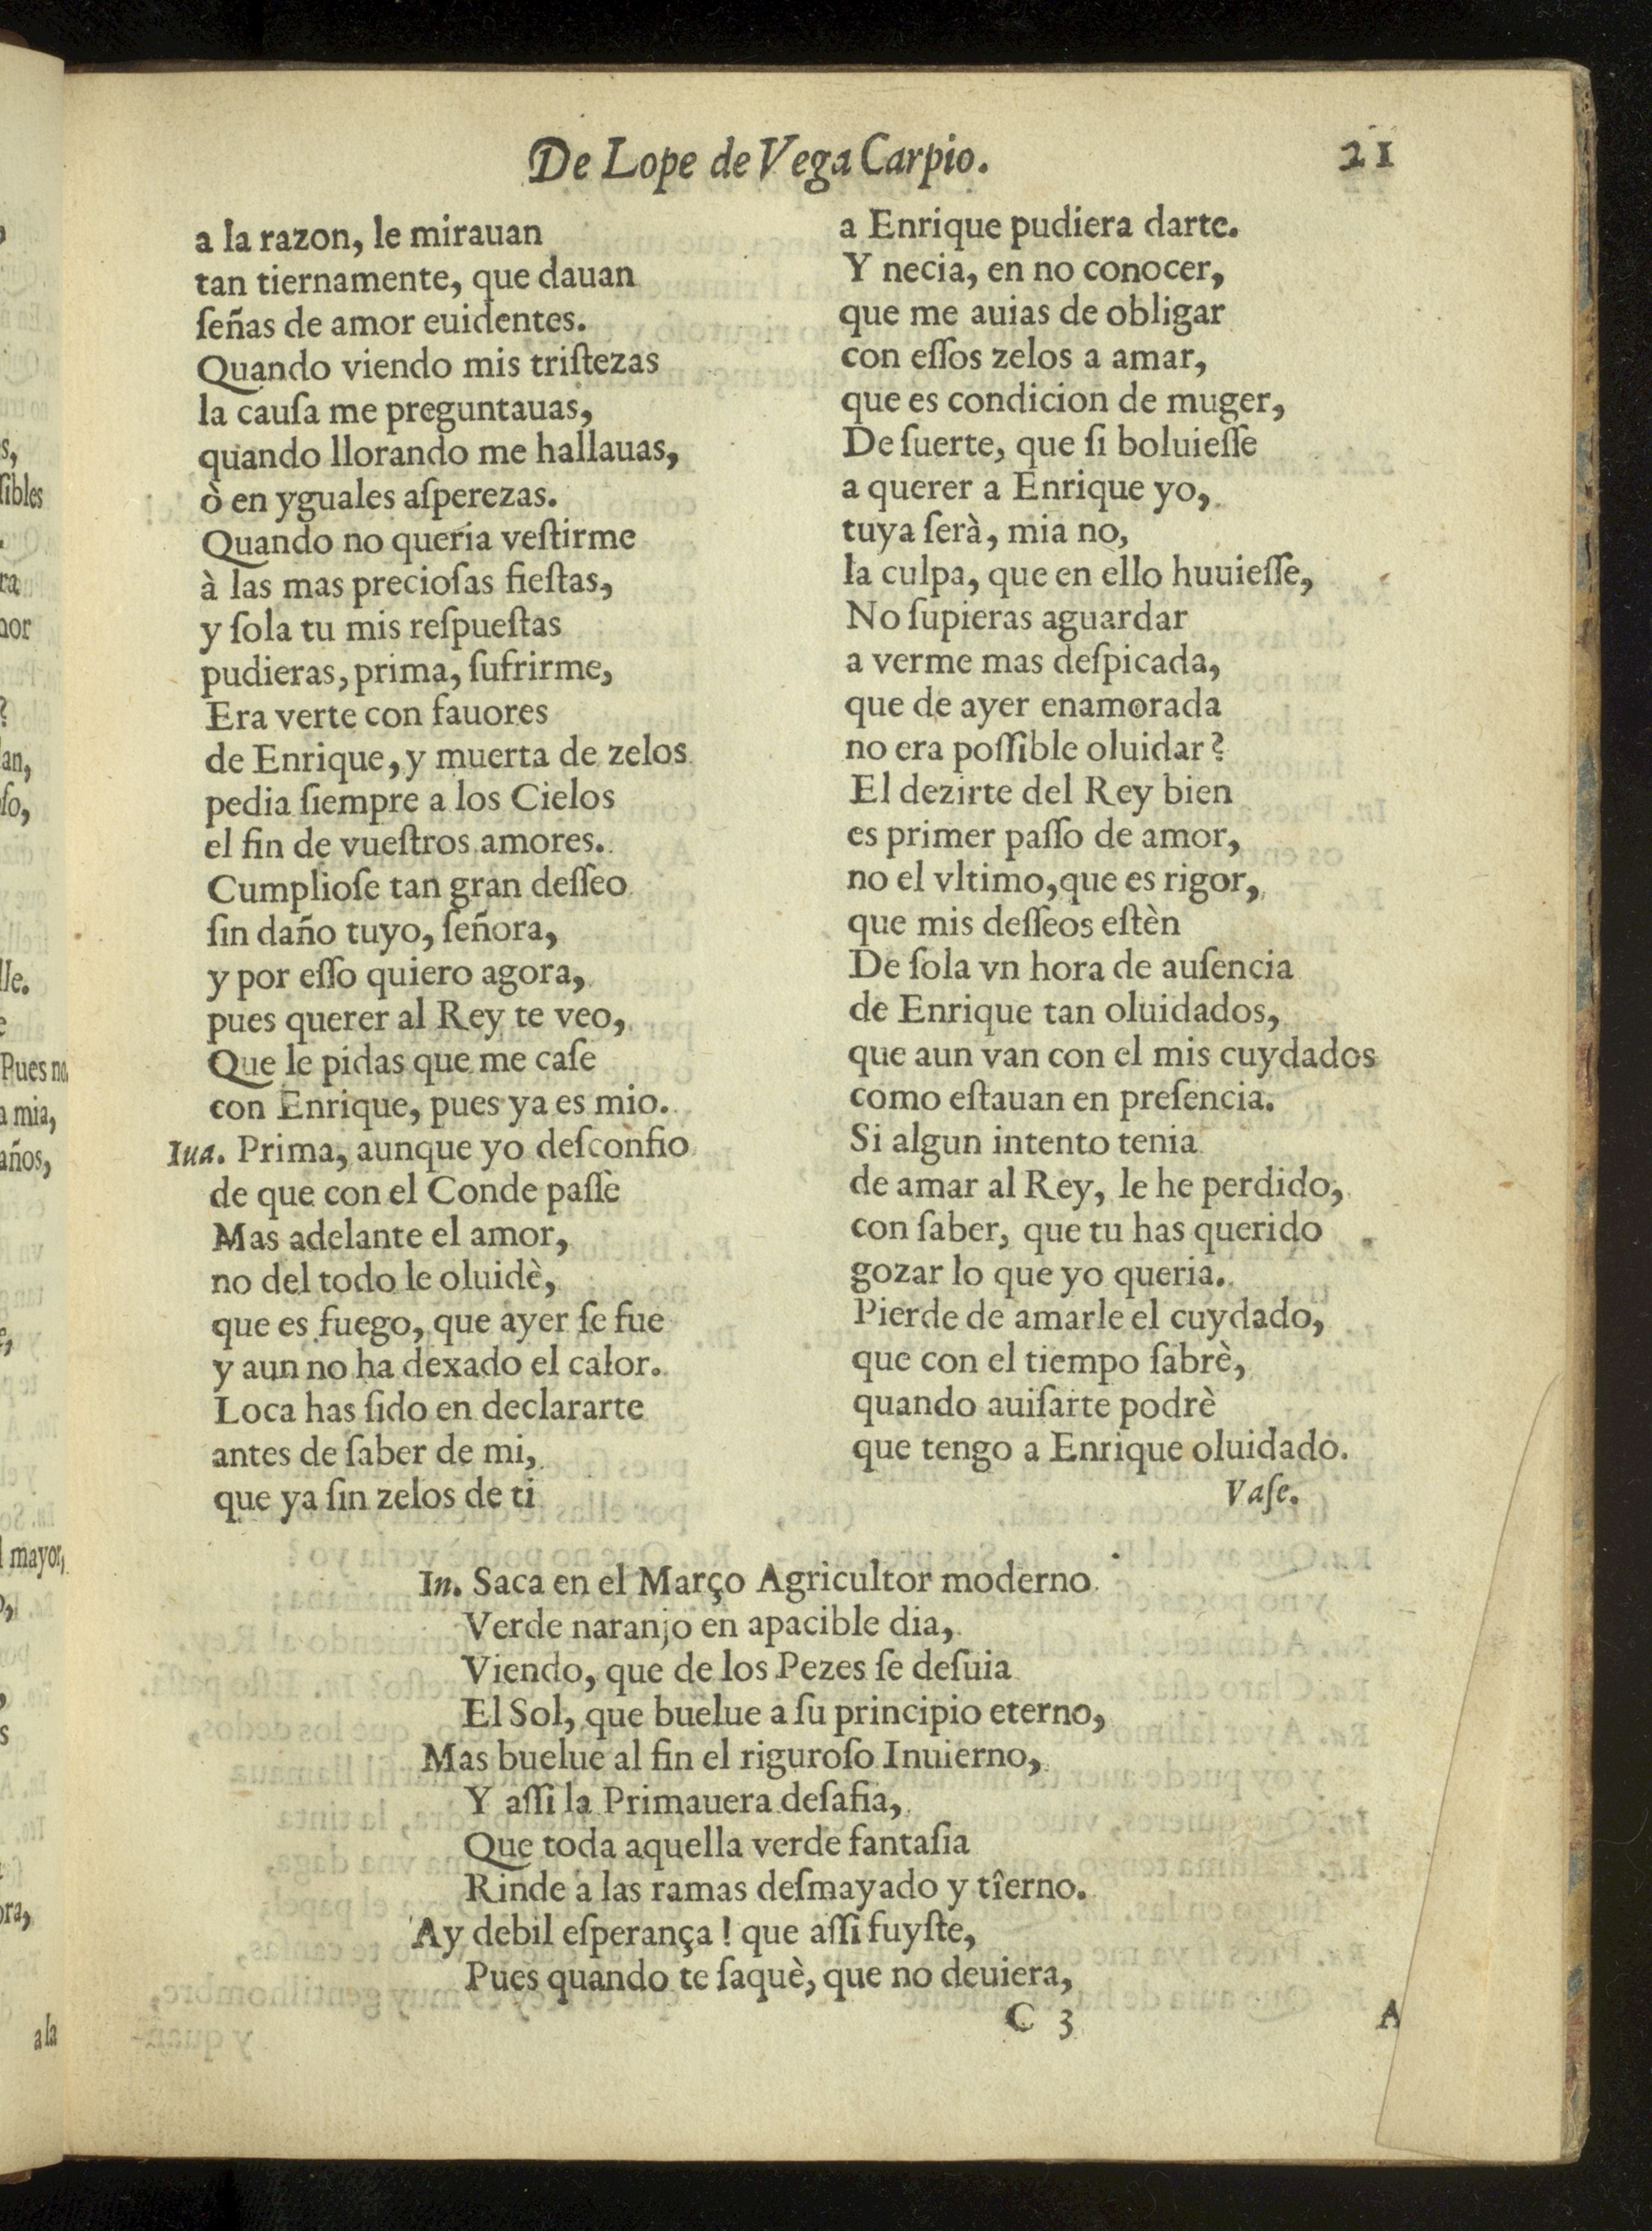 De Lope de Vega Carpio. 21
a la razon, le mirauan
tan tiernamente, que dauan
ſeñas de amor euidentes.
Quando viendo mis triſtezas
la cauſa me preguntauas,
quando llorando me hallauas,
ò en yguales aſperezas.
Quando no queria veſtirme
à las mas precioſas fieſtas,
y ſola tu mis reſpueſtas
pudieras, prima, ſufrirme,
Era verte con fauores
de Enrique, y muerta de zelos
pedia ſiempre a los Cielos
el fin de vueſtros amores.
Cumplioſe tan gran deſſeo
ſin daño tuyo, ſeñora,
y por eſſo quiero agora,
pues querer al Rey te veo,
Que le pidas que me caſe
con Enrique, pues ya es mio.
Iua. Prima, aunque yo deſconfio
de que con el Conde paſſè
Mas adelante el amor,
no del todo le oluidè,
que es fuego, que ayer ſe fue
y aun no ha dexado el calor.
Loca has ſido en declararte
antes de ſaber de mi,
que ya ſin zelos de ti
a Enrique pudiera darte.
Y necia, en no conocer,
que me auias de obligar
con eſſos zelos a amar,
que es condicion de muger,
De ſuerte, que ſi boluieſſe
a querer a Enrique yo,
tuya ſerà, mia no,
la culpa, que en ello huuieſſe,
No ſupieras aguardar
a verme mas deſpicada,
que de ayer enamorada
no era poſſible oluidar?
El dezirte del Rey bien
es primer paſſo de amor,
no el vltimo, que es rigor,
que mis deſſeos eſtèn
De ſola vn hora de auſencia
de Enrique tan oluidados,
que aun van con el mis cuydados
como eſtauan en preſencia.
Si algun intento tenia
de amar al Rey, le he perdido,
con ſaber, que tu has querido
gozar lo que yo queria.
Pierde de amarle el cuydado,
que con el tiempo ſabrè,
quando auiſarte podrè
que tengo a Enrique oluidado.
Vaſe.
In. Saca en el Março Agricultor moderno
Verde naranjo en apacible dia,
Viendo, que de los Pezes ſe deſuia
El Sol, que buelue a ſu principio eterno,
Mas buelue al fin el riguroſo Inuierno,
Y aſſi la Primauera deſafia,
Que toda aquella verde fantaſia
Rinde a las ramas deſmayado y tîerno.
Ay debil eſperança! que aſſi fuyſte,
Pues quando te ſaquè, que no deuiera,
C 3 A